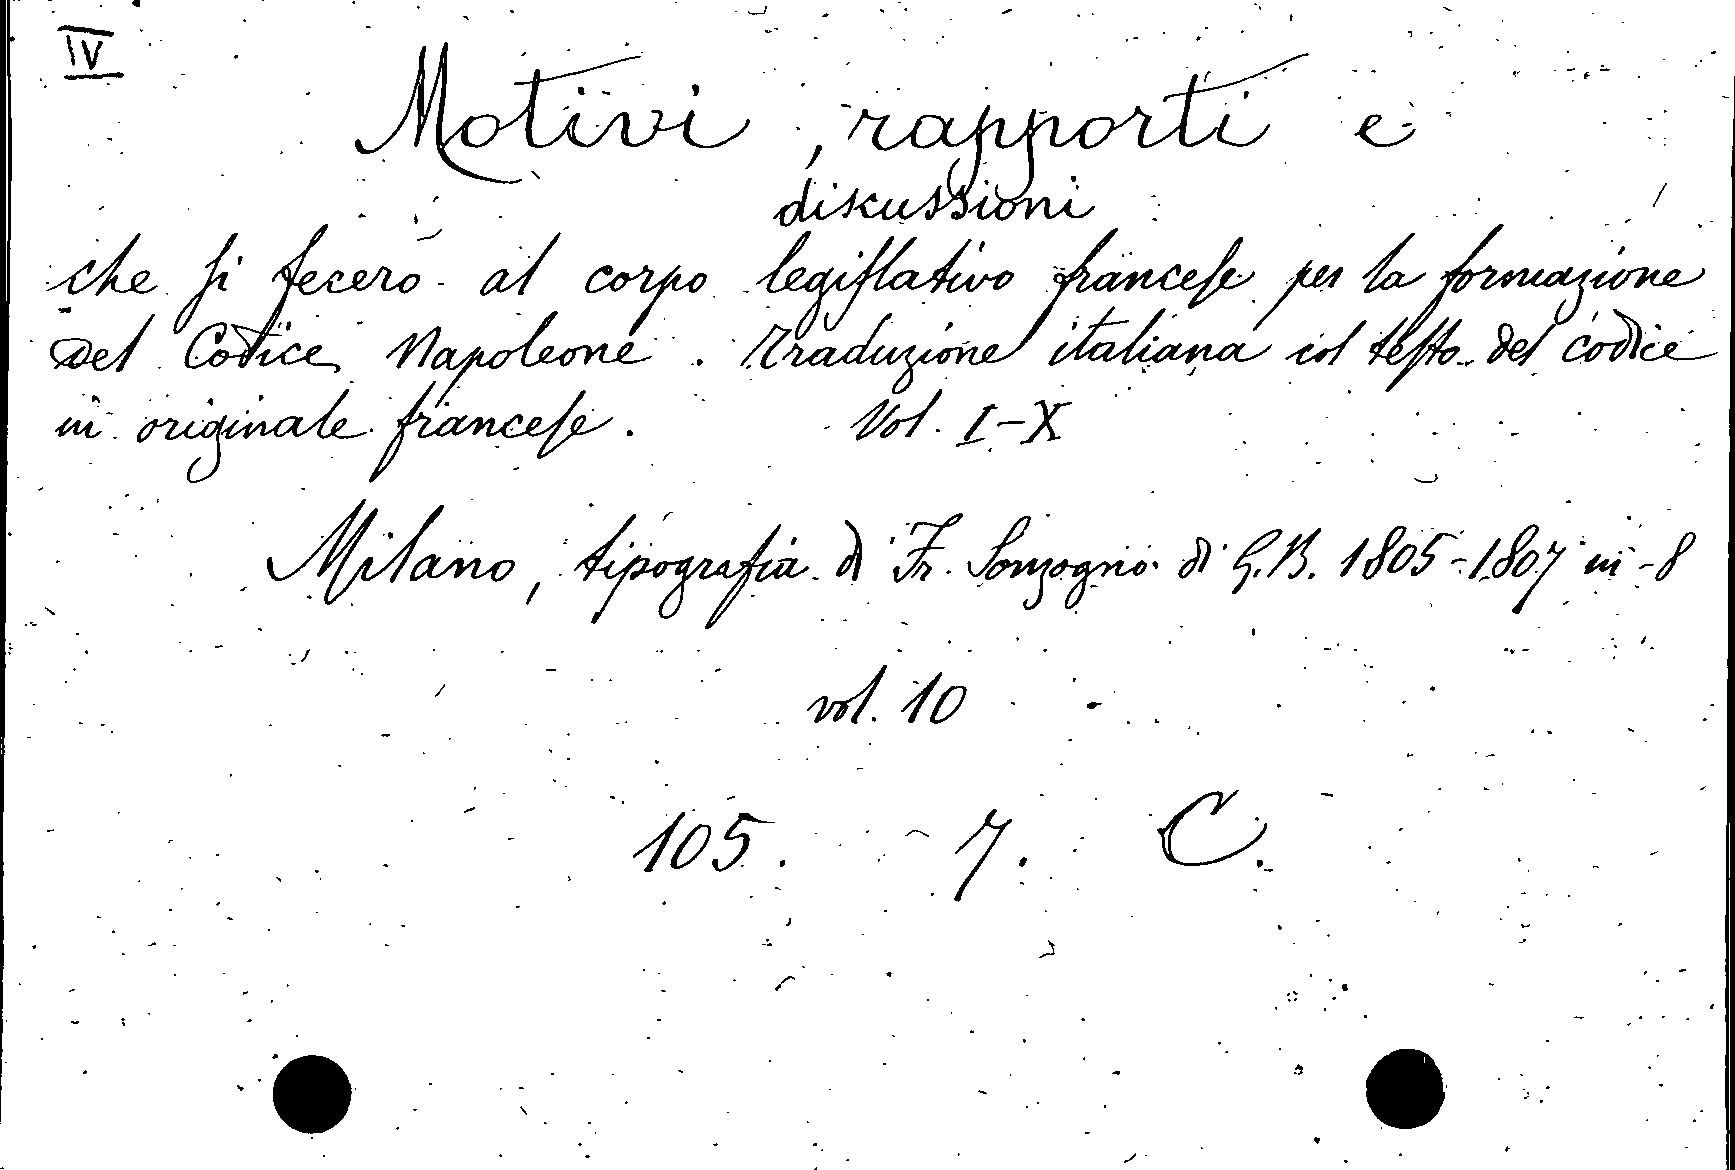 IV
Motivi, rapporti e
diskussioni
che si fecero al corpo legislativo francese per la formazione
del Codice Napoleone. Traduzione italiana col testo del codice
in originale francese. Vol. I-X
Milano, tipografia di Fr. Sonzogno di G.B. 1805-1807 in-8
vol. 10
105. 7. C.